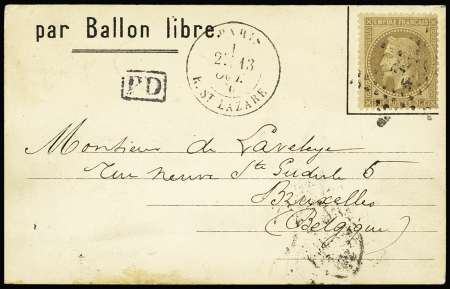 par Ballon libre.
PARIS
13
OCT.
R. St LAZARE
EMPIRE FRANÇAIS
PD
Monsieur de Laveleye
rue neuve Ste Gudule 5
Bruxelles
(Belgique)